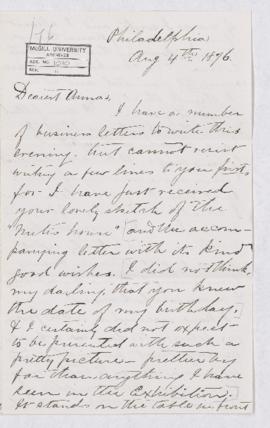 Philadelphia
Aug 4th 1896.
McGILL UNIVERSITY
ARCHIVES
ACC. NO. 1010
REF.
Dearest Anna,
I have a number
of business letters to write this
evening. but cannot resist
writing a few lines to you first,
for I have just received
your lovely sketch of the
house" and the accom-
panying letter with its kind
good wishes. I did not think,
my darling, that you knew
the date of my birthday,
& I certainly did not expect
to be presented with such a
pretty picture – prettier by
far than anything I have
seen in the Exhibition.
It stands on the table in front